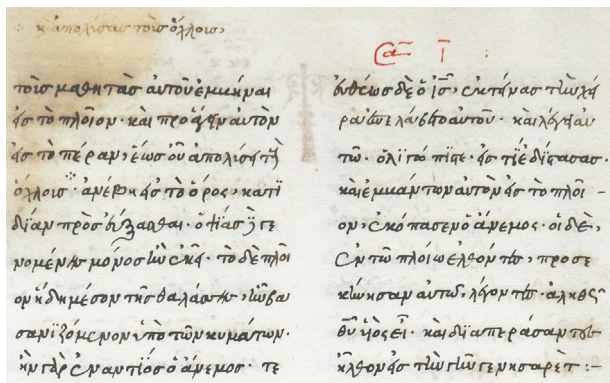 κ̀ ἀπολύσας τοὺς ὄχλους,
τοὺς μαθητὰς αὐτοῦ ἐμβῆναι
εἰς τὸ πλοῖον· καὶ προάγειν αὐτὸν
εἰς τὸ πέραν, ἕως οὗ ἀπολύσει τοὺς
ὄχλους· ἀνέβη εἰς τὸ ὄρος, κατϊ
δίαν προσεύξασθαι· ὀψίας δὲ γε
νομένης μόνος ἦν ἐκεῖ· τὸ δὲ πλοῖ
ον ἤδη μέσον τῆς θαλάσσης, ἦν βα
σανϊζόμενον ὑπὸ τῶν κυμάτων·
ἦν γὰρ ἐναντίος ὁ ἄνεμος· τε
ευθέως δὲ ὁ ἰς, ἐκτείνας τὴν χεῖ
ρα ἐπελάβετο αὐτοῦ· καὶ λέγει αὐ
τῶ· ὀλιγόπιστε· εἰς τί ἐδίστασας·
καὶ ἐμβάντων αὐτῶν εἰς τὸ πλοῖ
ον, ἐκόπασεν ὁ ἄνεμος· οἱ δὲ,
ἐν τῶ πλοίω ἐλθόντες, προσε
κύνησαν αὐτῶ, λέγοντες· ἀληθῶς
θῦ υἱὸς εἶ· καὶ διαπεράσαντες
ἦλθον εἰς τὴν γῆν γενησαρέτ :–